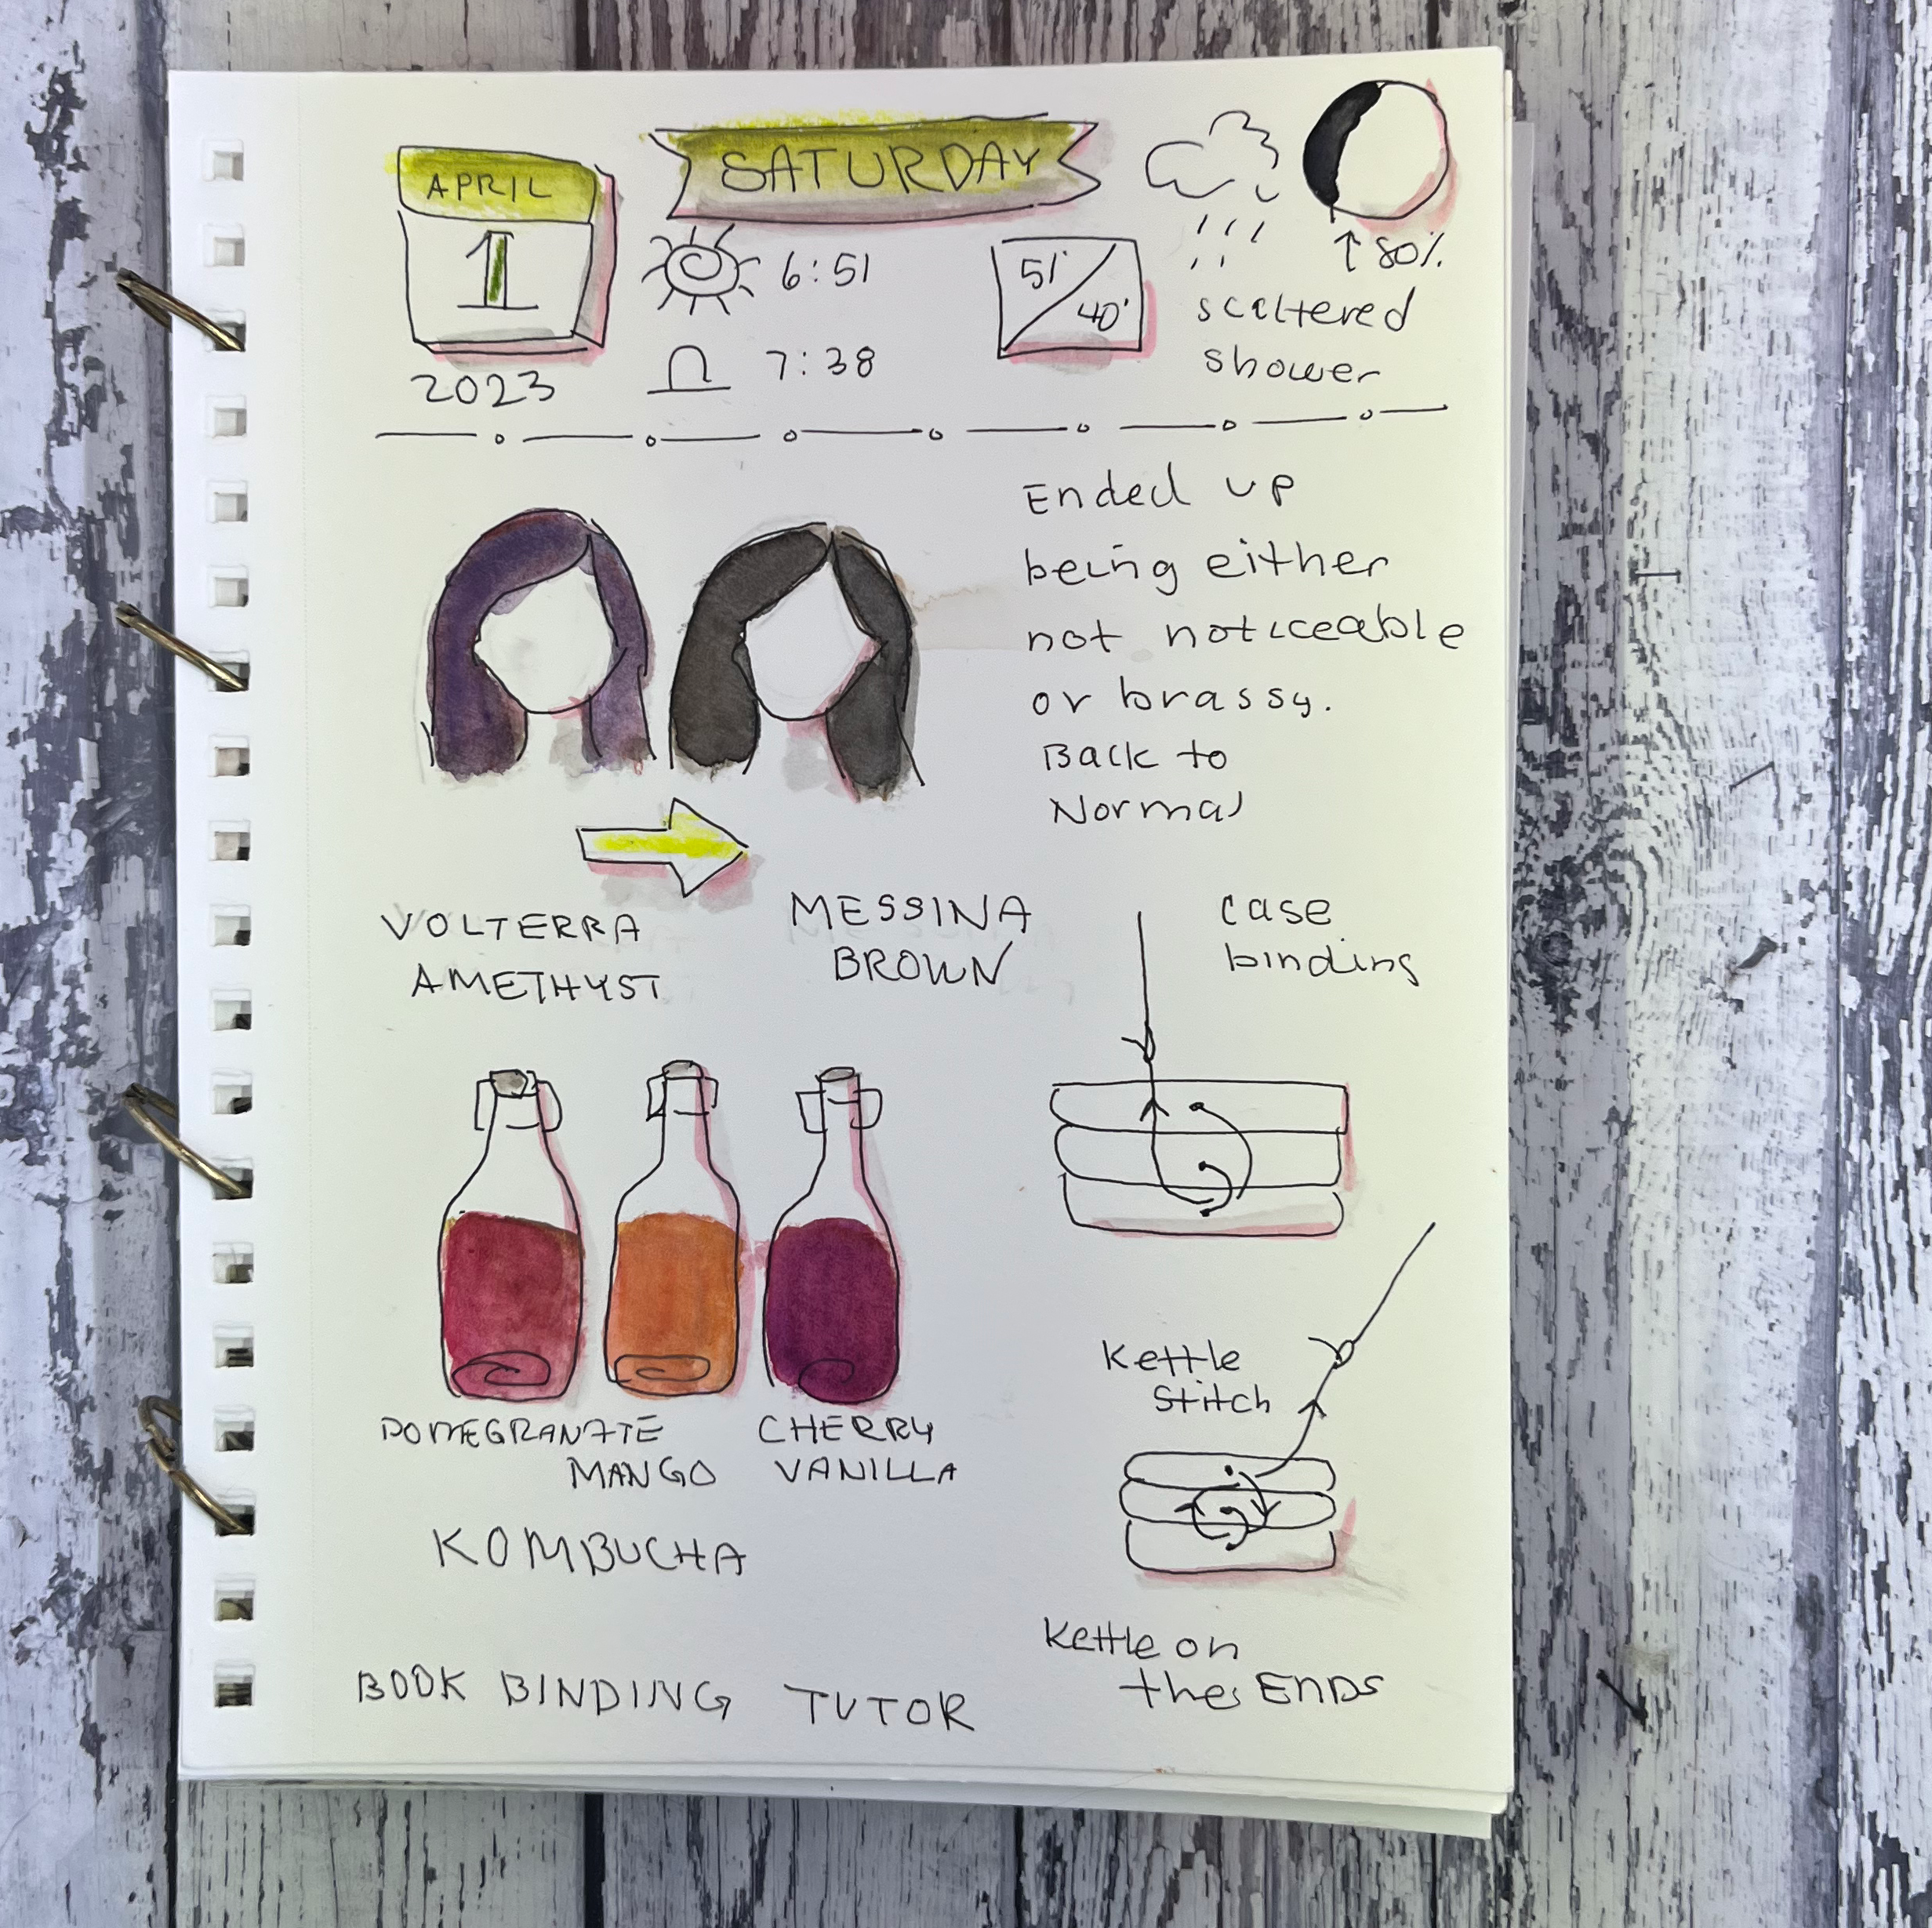 APRIL
1
2023
SATURDAY
6:51
7:38
51°
40°
↑ 80%
scattered
shower
Ended up
being either
not noticeable
or brassy.
Back to
Normal
VOLTERRA
AMETHYST
MESSINA
BROWN
case
binding
POMEGRANATE
MANGO
CHERRY
VANILLA
KOMBUCHA
Kettle
Stitch
Kettle on
the ENDS
BOOK BINDING TUTOR